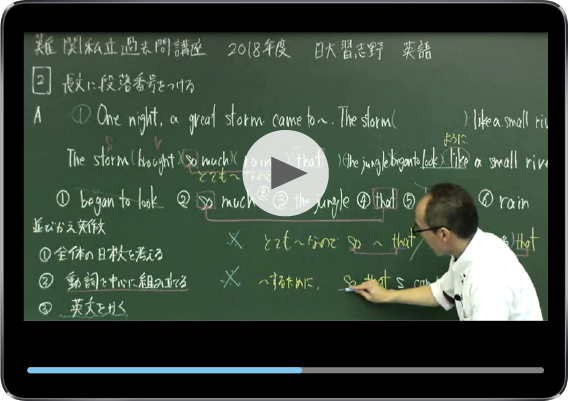 難関私立過去問講座 2018年度 日大習志野 英語
2 長文に段落番号をつける
A ① One night, a great storm came to~. The storm( ) like a small riv
S V ように
The storm (brought)(so much)(rain)(that)(the jungle began to look)(like a small rive
とても~なので
① began to look ② so much ③ the jungle ④ that ⑤ ⑥ rain
並びかえ英作文
※ とても~なので so ~ that
that
① 全体の日本文を考える
② 動詞を中心に組み立てる ※ ~するために、 so that s can
③ 英文をかく